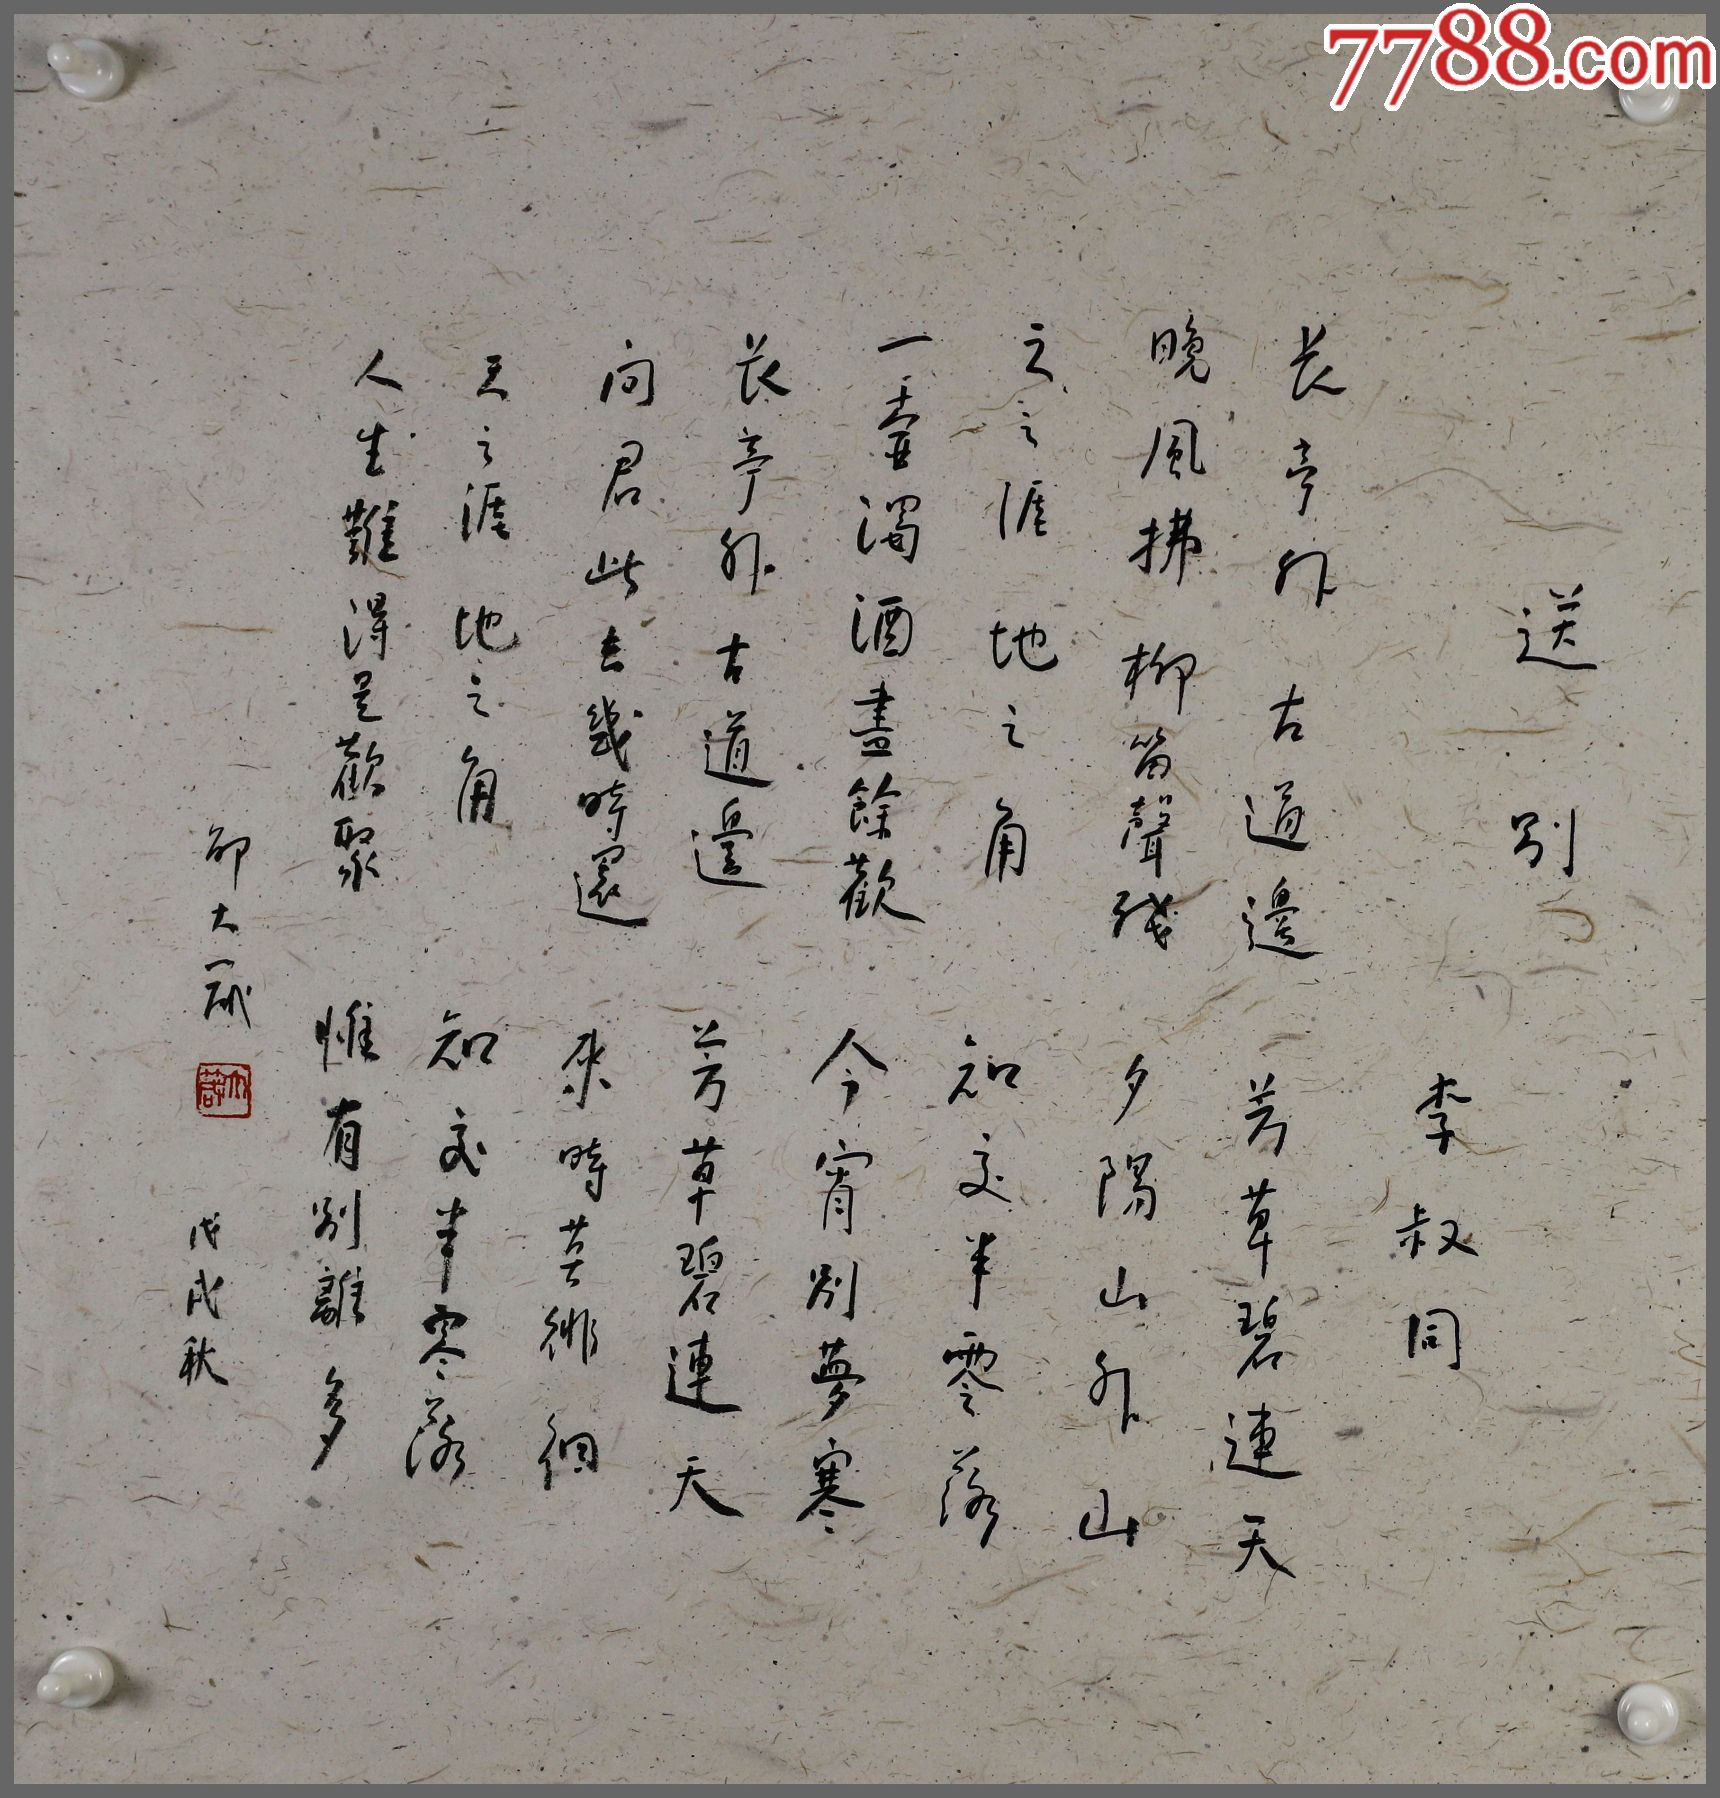 7788.com
送别
李叔同
長亭外 古道邊 芳草碧連天
晚風拂柳笛聲殘 夕陽山外山
天之涯 地之角 知交半零落
一壺濁酒盡餘歡 今宵別夢寒
長亭外 古道邊 芳草碧連天
問君此去幾時還 來時莫徘徊
天之涯 地之角 知交半零落
人生難得是歡聚 惟有別離多
邵大箴 戊戌秋